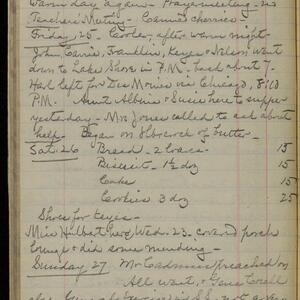 warm day again - Prayer meeting - no
Teachers' Meeting - Canned cherries -
Friday 25. Cooler, after warm night -
John, Carrie, Franklin, Keyes & Nelson went
down to Lake Shore in P.M. back about 7.
Harl left for Des Moines via Chicago, 8:10
P.M. Aunt Albina & Susie here to supper
yesterday - Mrs Jones called to ask about
help. Began on crock of butter -
Sat. 26 Bread - 2 loaves 15
Biscuit - 1½ doz 15
Cake 15
Cookies 3 doz 25
Shoes for Keyes -
Miss Hulbert here Wed. 23. covered porch
lounge & did some mending -
Sunday 27 Mr Cadmus preached on
All went, &